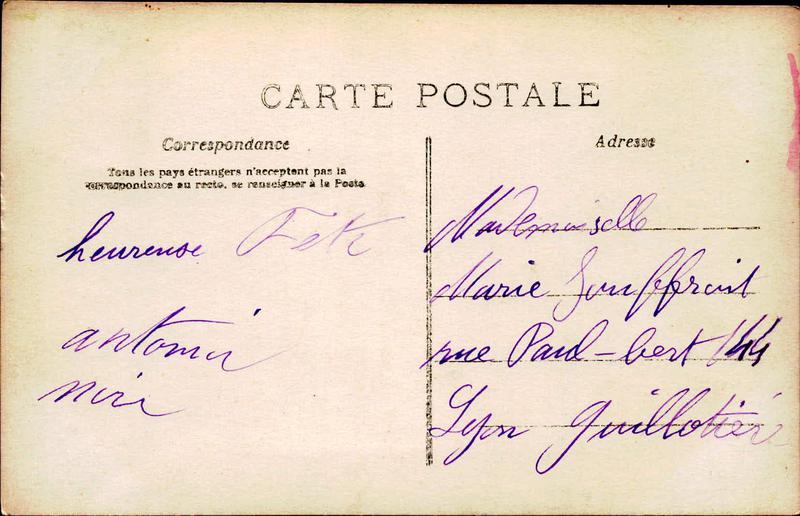 CARTE POSTALE
Correspondance
Tous les pays étrangers n'acceptent pas la
correspondance au recto, se renseigner à la Poste
heureuse Fete
antonin
Adresse
Mademoiselle
Marie Jouffroit
rue Paul-bert 144
Lyon Guillotière